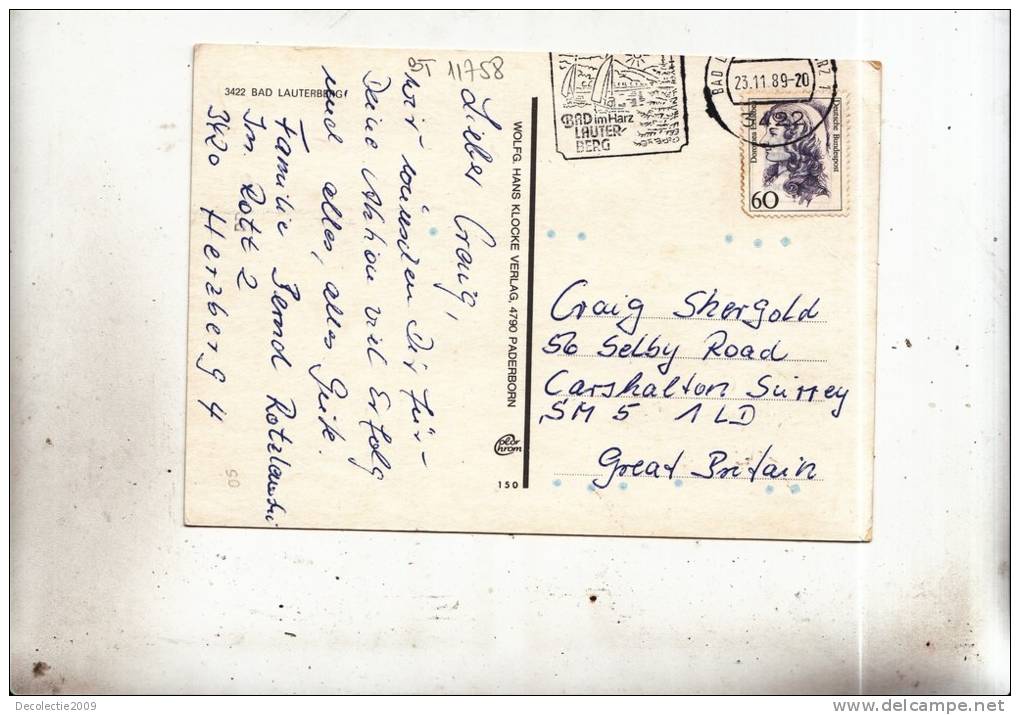 3422 BAD LAUTERBERG
BT 11758
Lieber Craig,
wir wünschen Dir für
Deine Aktion viel Erfolg
und alles, alles Gute.
Familie Bernd
Im Rott 2
3420 Herzberg 4
50
WOLFG. HANS KLOCKE VERLAG, 4790 PADERBORN
Color
Chrom
150
BAD im Harz
LAUTER-
BERG
23.11.89-20
3422
Deutsche Bundespost
60
Craig Shergold
56 Selby Road
Carshalton Surrey
SM 5 1 LD
Great Britain
Decolectie2009
www.delcampe.net